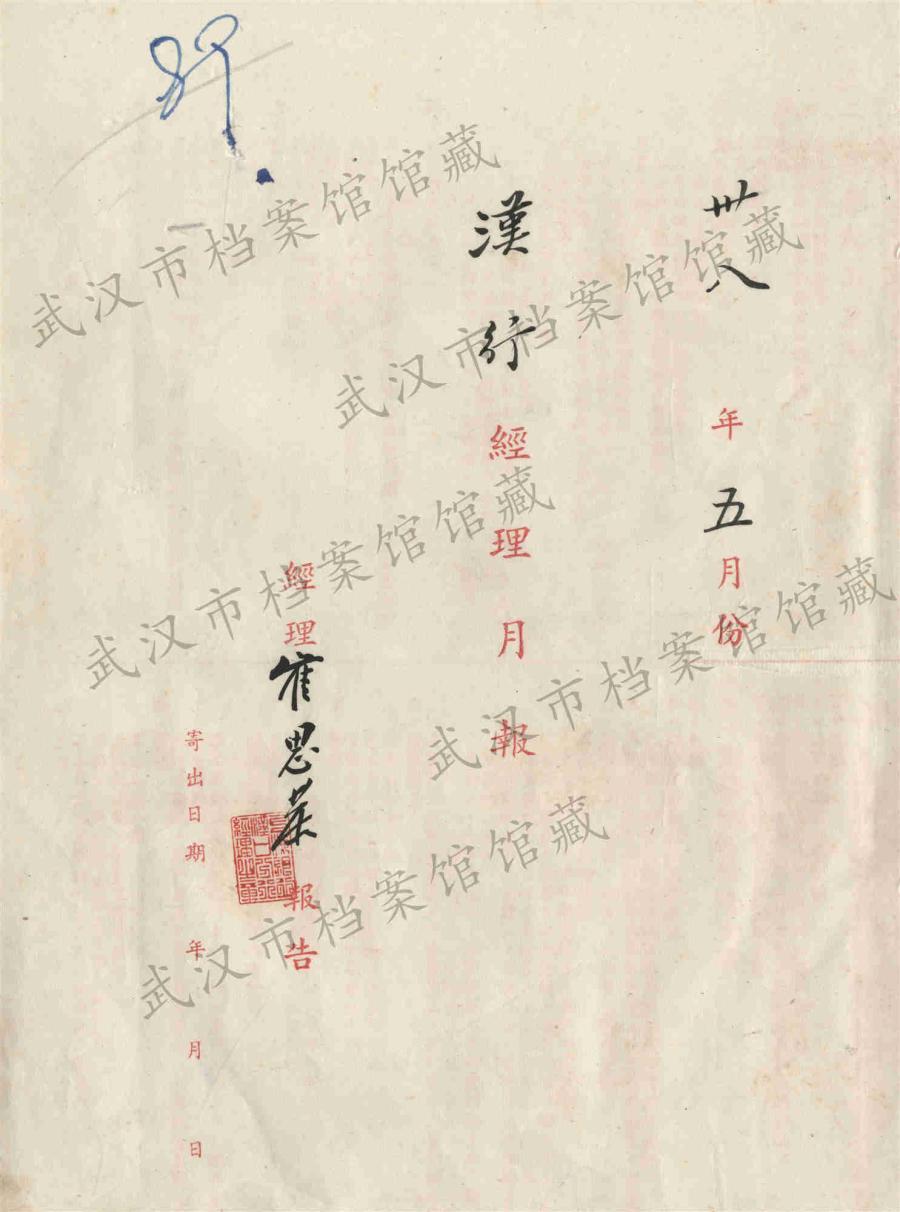 卅八年五月份
漢行經理月報
經理崔思報告
寄出日期 年 月 日
武汉市档案馆馆藏
武汉市档案馆馆藏
武汉市档案馆馆藏
武汉市档案馆馆藏
武汉市档案馆馆藏